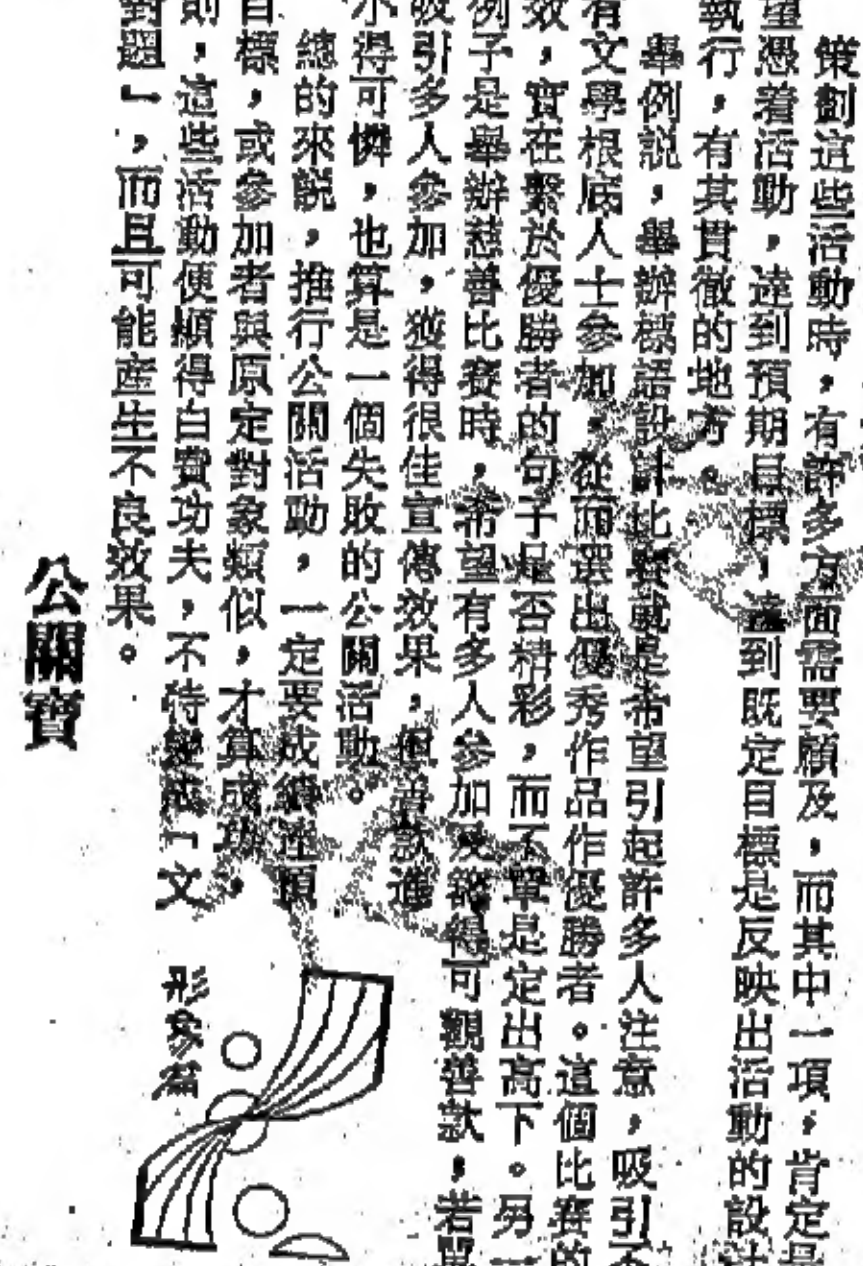 策劃這些活動時，有許多方面需要顧及，而其中一項，肯定是
望憑着活動，達到預期目標，達到既定目標是反映出活動的設計
執行，有其貫徹的地方。
舉例説，舉辦標語設計比賽就是希望引起許多人注意，吸引不
有文學根底人士參加，從而選出優秀作品作優勝者。這個比賽的
效，實在繫於優勝者的句子是否精彩，而不單是定出高下。另一
例子是舉辦慈善比賽時，希望有多人參加及籌得可觀善款，若單
吸引多人參加，獲得很佳宣傳效果，但善款進
不得可憐，也算是一個失敗的公關活動。
總的來説，推行公關活動，一定要成績達預
目標，或參加者與原定對象類似，才算成功，
則，這些活動便顯得白費功夫，不待變成「文
對題」，而且可能産生不良效果。
公關寶
形象篇